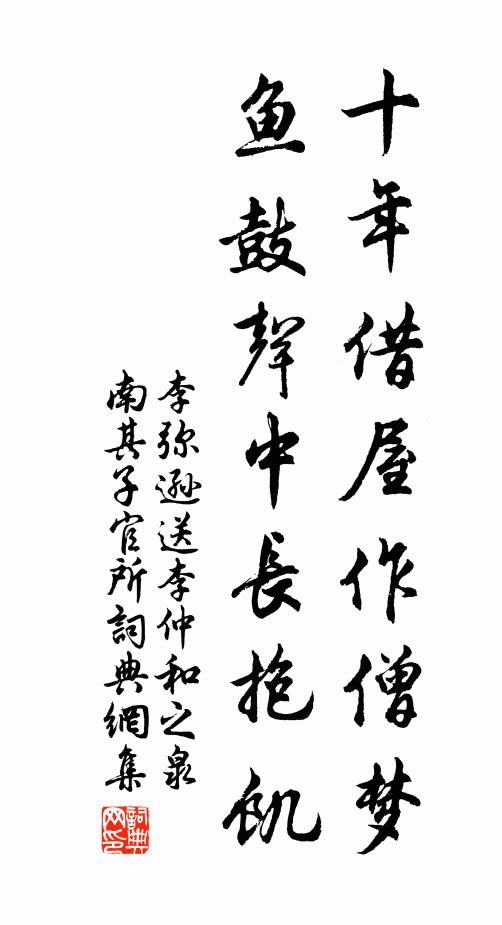 十年借屋作僧梦
鱼鼓聲中長抱飢
李弥遜送李仲和之泉
南其子官所詞典網集
詞典网印